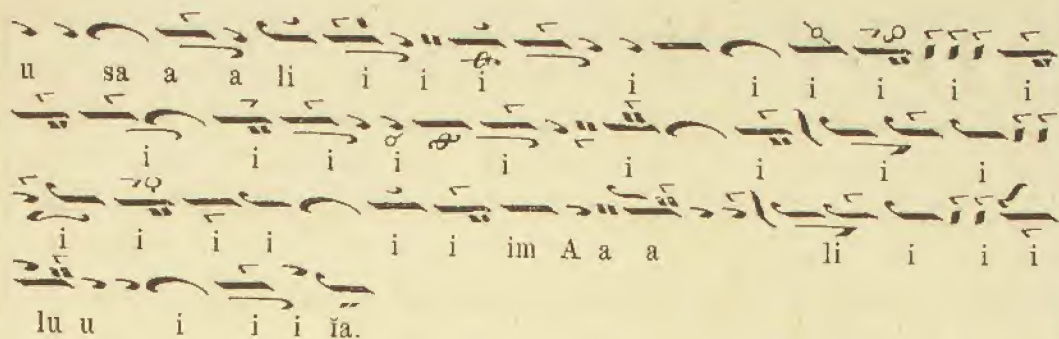 u sa a a li i i i i i i i i i
i i i i i i i i i
i i i i i i im A a a li i i i
lu u i i i ĭa.